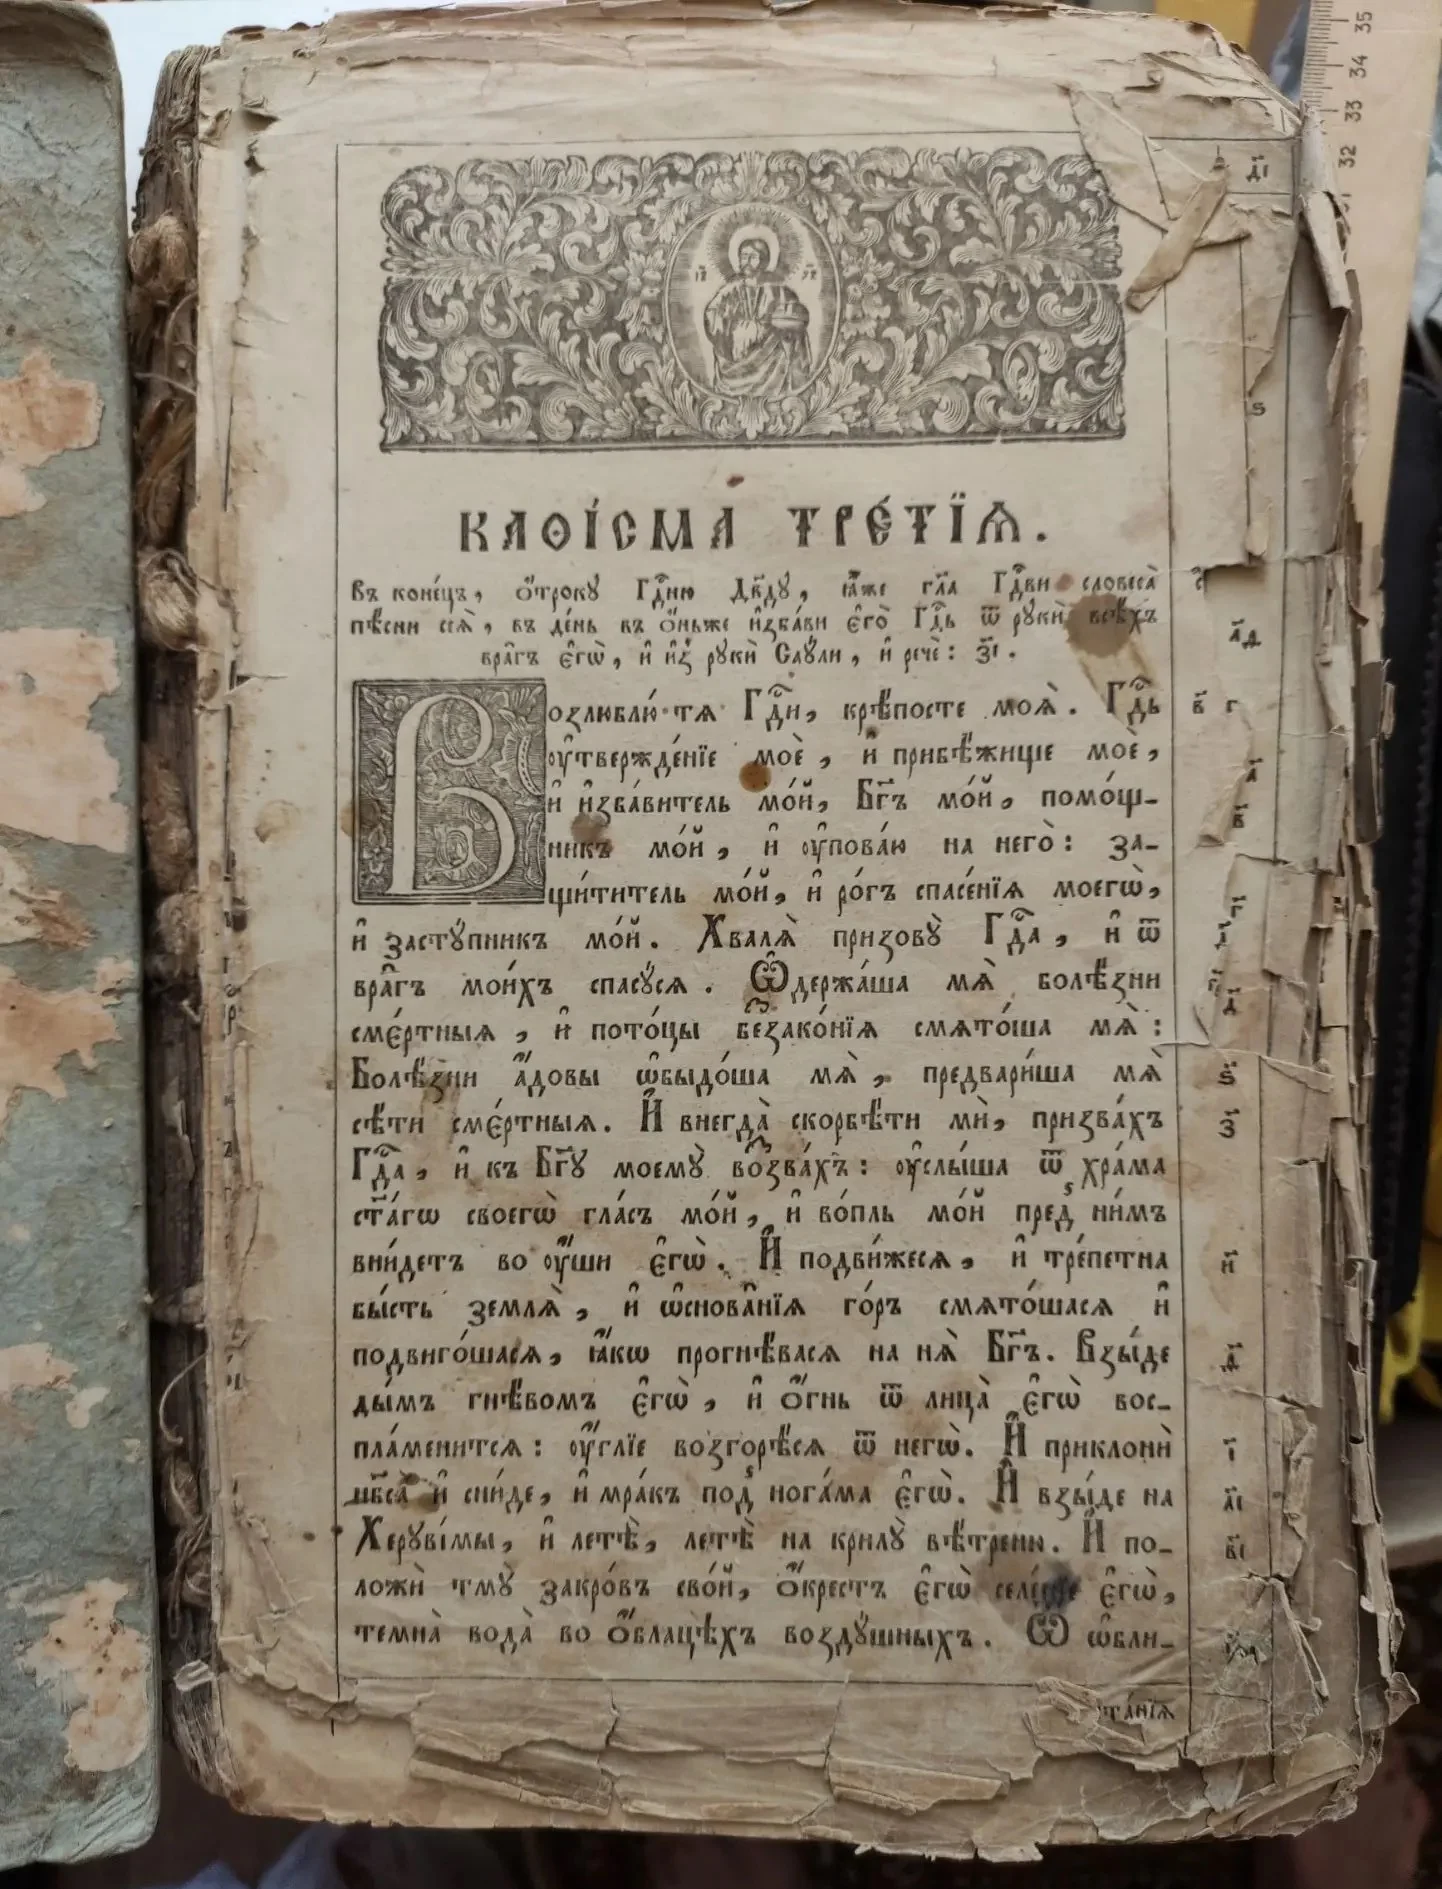 д҃і
ѕ
КАѲІ́СМА ТРЕ́ТІѦ.
Въ коне́цъ, ѻ҆́троку Гдⷭ҇ню Дв҃ду, ꙗ҆̀же гл҃а Гдⷭ҇ви словеса̀
пѣ́сни сеѧ̀, въ де́нь въ ѻ҆́ньже и҆зба́ви є҆го̀ Гдⷭ҇ь ѿ рукѝ всѣ́хъ
вра̑гъ є҆гѡ̀, и҆ и҆з̾ рукѝ Саꙋ́ли, и҆ речѐ: з҃і.
Возлюблю́ тѧ Гдⷭ҇и, крѣ́посте моѧ̀. Гдⷭ҇ь
в҃ г
ᲂу҆твержде́нїе моѐ, и҆ прибѣ́жище моѐ,
и҆ и҆зба́витель мо́й, Бг҃ъ мо́й, помо́щ-
никъ мо́й, и҆ ᲂу҆пова́ю на него̀: за-
щи́титель мо́й, и҆ ро́гъ спасе́нїѧ моегѡ̀,
и҆ засту́пникъ мо́й. Хвалѧ̀ призовꙋ̀ Гдⷭ҇а, и҆ ѿ
вра̑гъ мои́хъ спасꙋ́сѧ. Ѡ҆держа́ша мѧ̀ болѣ́зни
сме́ртныѧ, и҆ пото́цы беззако́нїѧ смѧто́ша мѧ̀:
Болѣ́зни а҆́довы ѡ҆быдо́ша мѧ̀, предвари́ша мѧ̀
ѕ҃
сѣ́ти сме́ртныѧ. И҆ внегда̀ скорбѣ́ти мѝ, призва́хъ
з҃
Гдⷭ҇а, и҆ къ Бг҃ꙋ моемꙋ̀ воззва́хъ: ᲂу҆слы́ша ѿ хра́ма
ст҃а́гѡ своегѡ̀ гла́съ мо́й, и҆ во́пль мо́й пред̾ ни́мъ
вни́детъ во ᲂу҆́ши є҆гѡ̀. И҆ подви́жесѧ, и҆ тре́петна
и҃
бы́сть землѧ̀, и҆ ѡ҆снова̑нїѧ го́ръ смѧто́шасѧ и҆
подвиго́шасѧ, ꙗ҆́кѡ прогнѣ́васѧ на нѧ̀ Бг҃ъ. Взы́де
ды́мъ гнѣ́вомъ є҆гѡ̀, и҆ ѻ҆́гнь ѿ лица̀ є҆гѡ̀ вос-
пла́менитсѧ: ᲂу҆́глїе возгорѣ́сѧ ѿ негѡ̀. И҆ приклонѝ
і҃
нб҃са̀ и҆ сни́де, и҆ мра́къ под̾ нога́ма є҆гѡ̀. И҆ взы́де на
а҃і
Херꙋві́мы, и҆ летѣ̀, летѣ̀ на крилꙋ̀ вѣ́треню. И҆ по-
в҃і
ложѝ тмꙋ̀ закро́въ сво́й, ѻ҆́крестъ є҆гѡ̀ селе́нїе є҆гѡ̀,
темна̀ вода̀ во ѻ҆́блацѣхъ воздꙋ́шныхъ. Ѿ ѡ҆бли-
ста́нїѧ
35
34
33
32